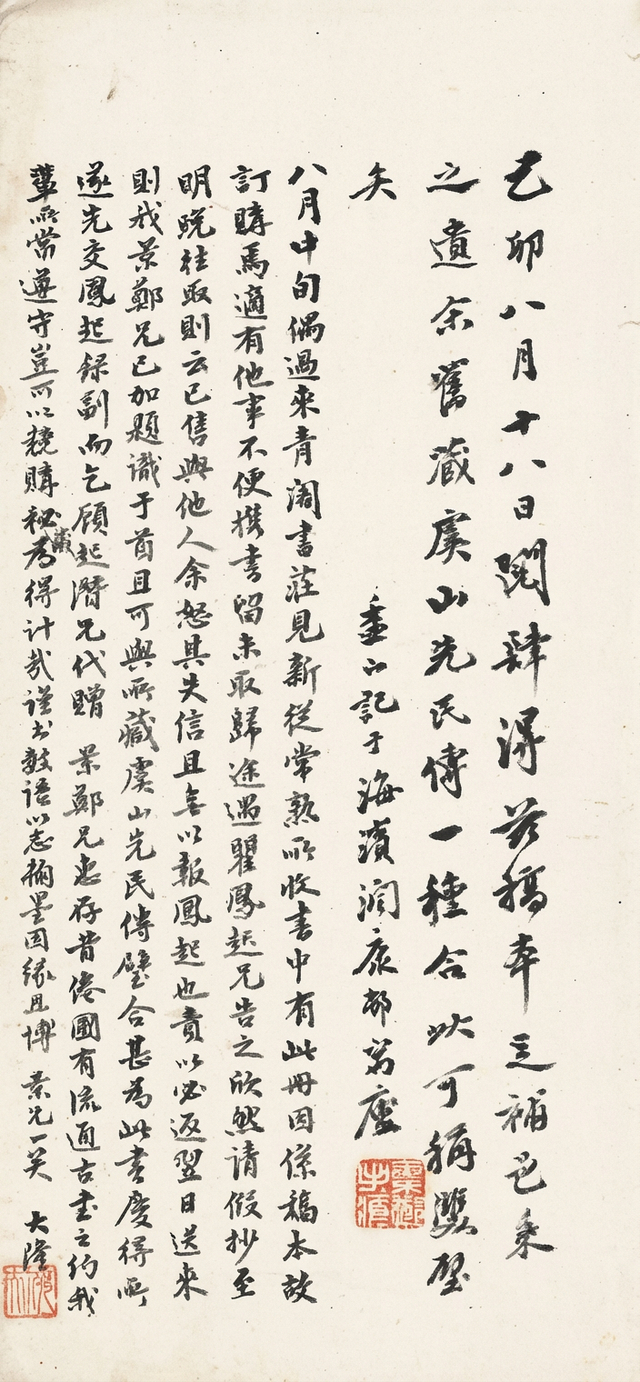 己卯八月十八日閱肆得茲稿本足補邑乘
之遺余舊藏虞山先民傳一種合此可稱雙璧
矣
盉山記于海濱潤康邨寓廬
八月中旬偶過來青閣書莊見新從常熟所收書中有此冊因係稿本故
訂購焉適有他事不便攜書留未取歸途遇瞿鳳起兄告之欣然請假抄至
明晚往取則云已售與他人余怒其失信且無以報鳳起也責以必返翌日送來
則我景鄭兄已加題識于首且可與所藏虞山先民傳璧合甚為此書慶得所
遂先交鳳起錄副而乞顧起潛兄代贈 景鄭兄惠存昔倦圃有流通古書之約我
輩所當遵守豈可以競購秘藏為得計哉謹書數語以志翰墨因緣且博 景兄一笑 大隆